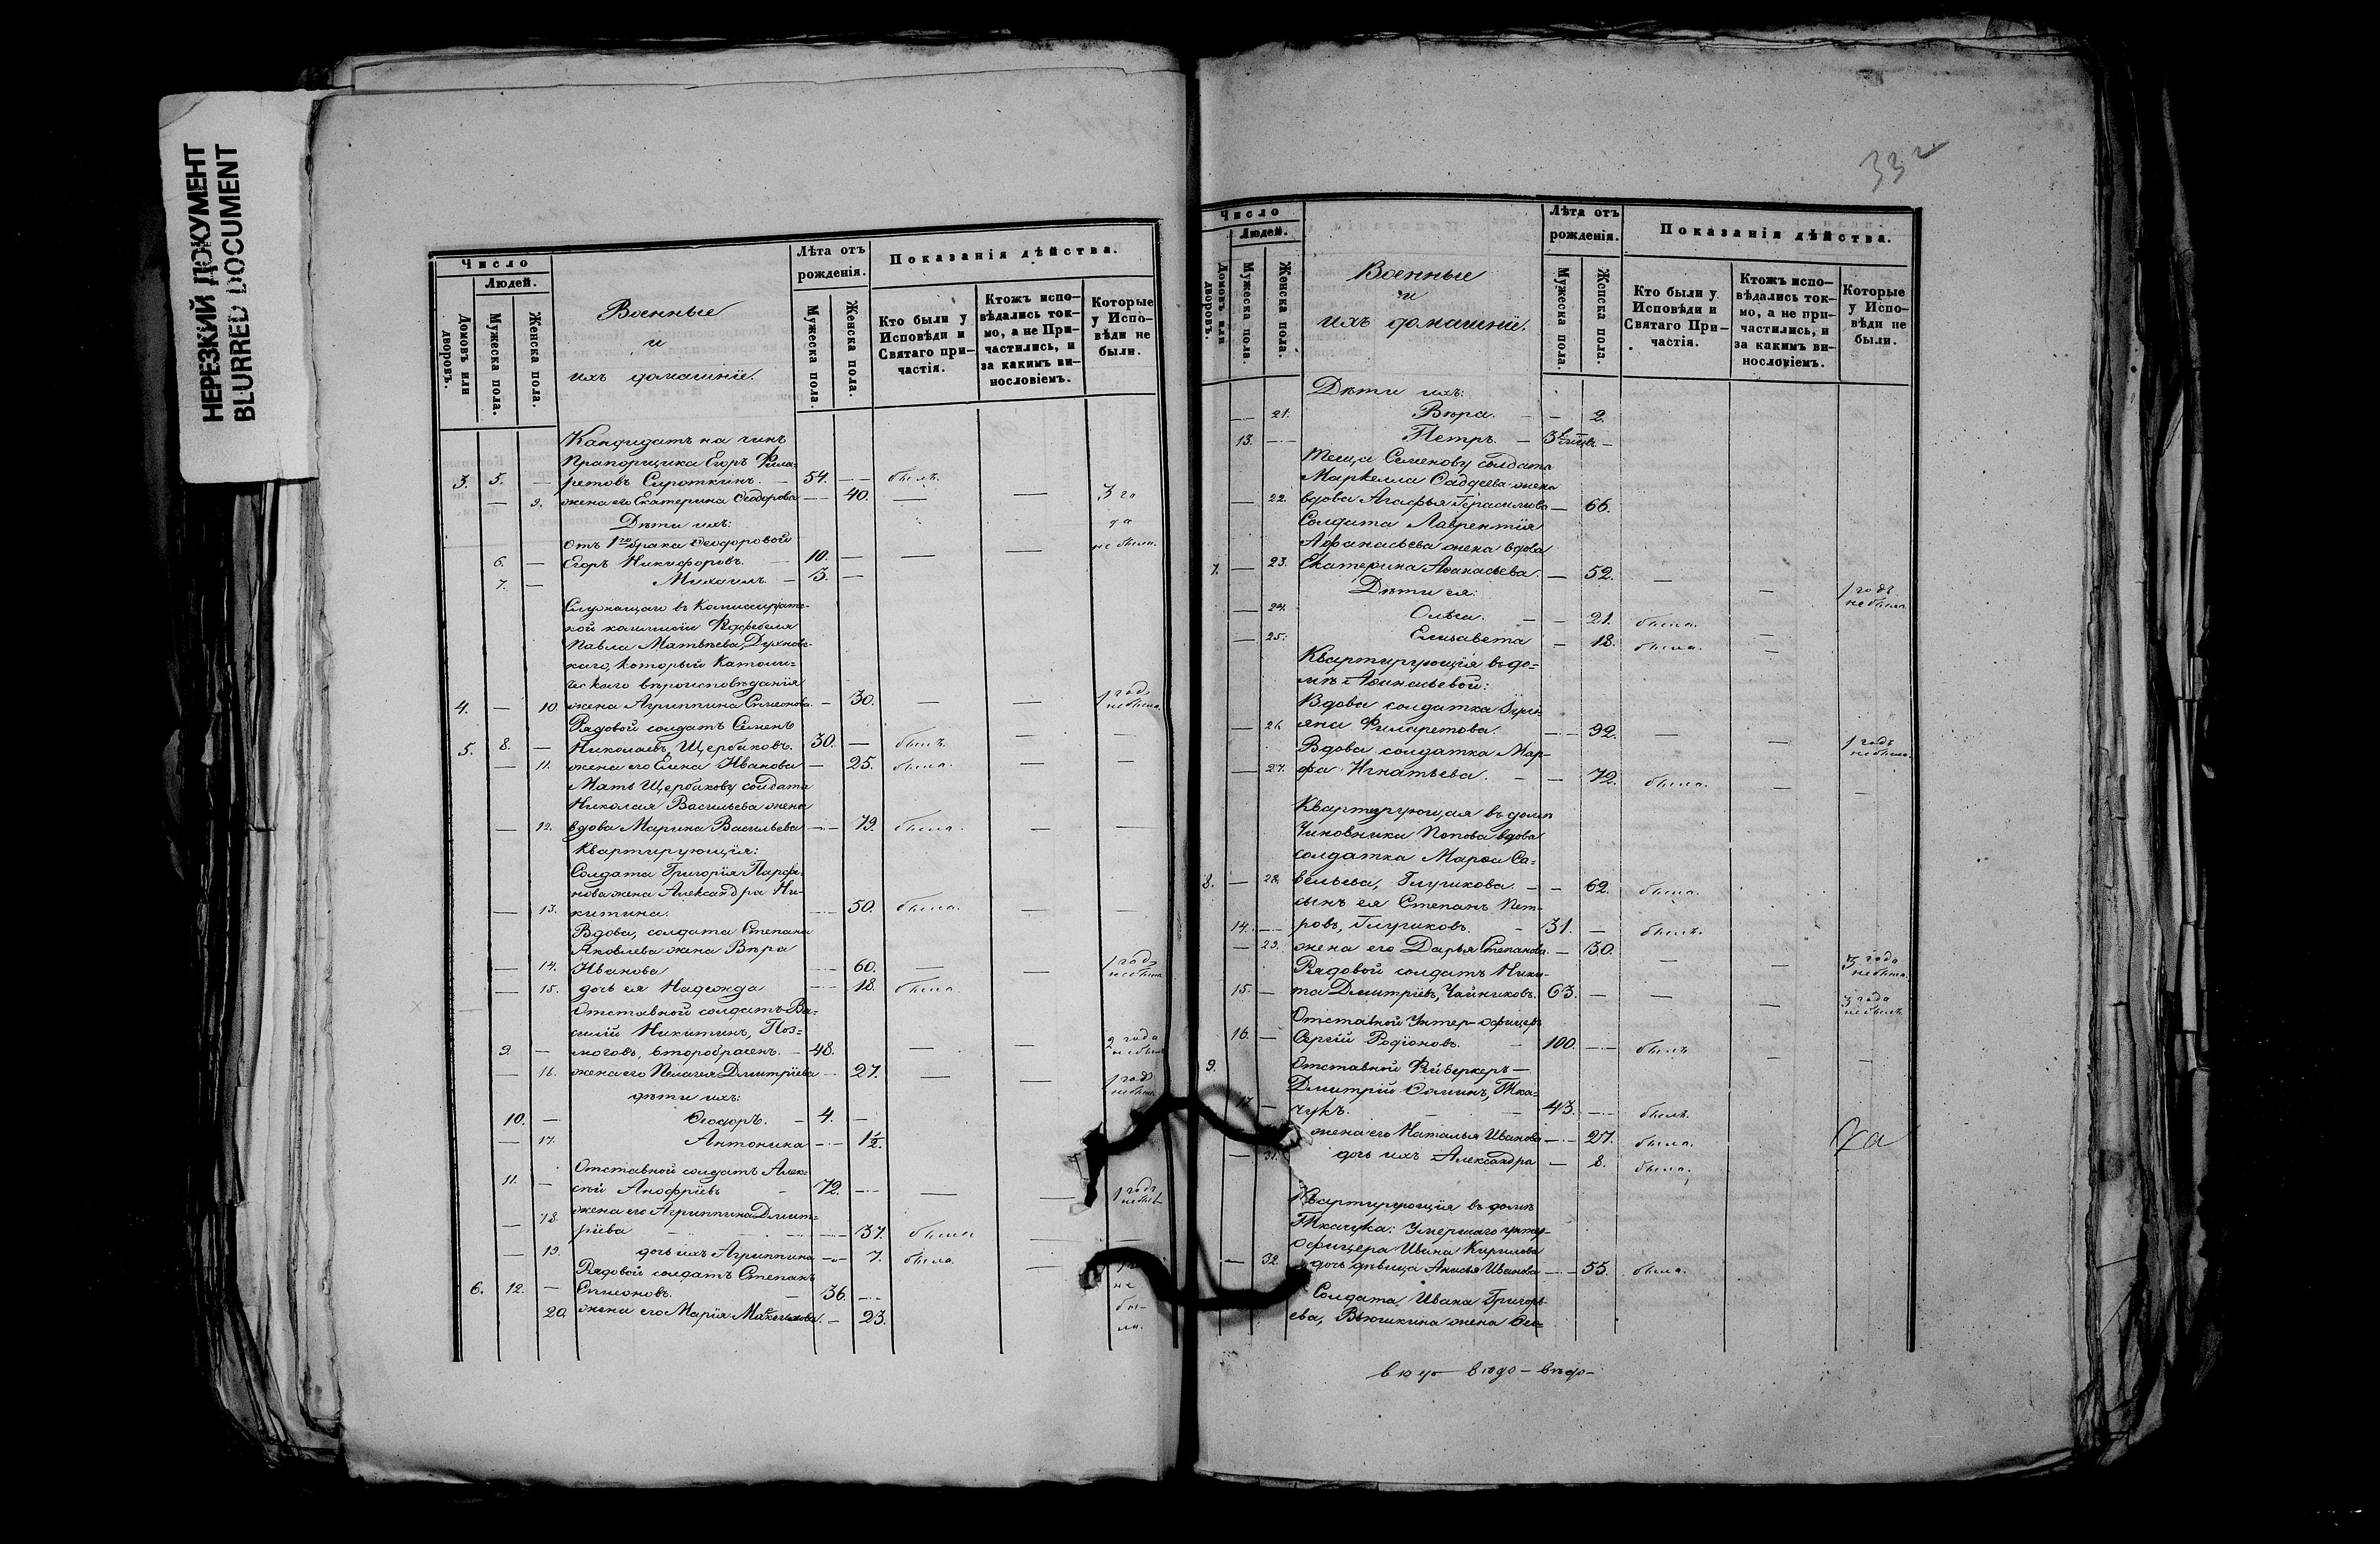 НЕРЕЗКИЙ ДОКУМЕНТ
BLURRED DOCUMENT
Число
Людей.
Домовъ или дворовъ.
Мужеска пола.
Женска пола.
Военные
и
ихъ домашніе.
Лѣта отъ рожденія.
Мужеска пола.
Женска пола.
Показанія дѣйства.
Кто были у Исповѣди и Святаго при-
частія.
Ктожъ испо-
вѣдались ток-
мо, а не При-
частились, и
за какимъ ви-
нословіемъ.
Которые
у Испо-
вѣди не
были.
Кандидатъ на чинъ
Прапорщика Егоръ Фила-
3. 5. — ретовъ Сироткинъ. — 54. — былъ.
— 9. жена его Екатерина Ѳеодорова — 40. — — 3 го
Дѣти ихъ: да
Отъ 1го брака Ѳеодоровой не была.
6. — Егоръ Никифоровъ. — 10. —
7. — Михаилъ — 3. —
Служащаго въ Коммисаріатс-
кой коммисіи Фельдфебеля
Павла Матвѣева, Духновс-
каго, который Католи-
ческаго вѣроисповѣданія
4. — 10. жена Агриппина Симеонова. — 30. — — 1 годъ не была.
Рядовой солдатъ Семенъ
5. 8. — Николаевъ, Щербаковъ. 30. — былъ. — —
— 11. жена его Елена Иванова — 25. была. — —
Мать Щербакову солдата
Николая Васильева жена
— 12. вдова Марина Васильева — 79. была. — —
Квартирующія:
Солдата Григорія Парѳе-
нова жена Александра Ни-
— 13. китина. — 50. была. — —
Вдова, солдата Степана
Яковлева жена Вѣра
— 14. Иванова — 60. — — 1 годъ не была
— 15. дочь ея Надежда — 18. была.
Отставной солдатъ Ва-
силій Никитинъ, Поз-
9. — моговъ, второбраченъ. — 48. — — 2 года не былъ
— 16. жена его Пелагея Дмитріева — 27. — — 1 годъ не была
дѣти ихъ:
10. — Ѳеодоръ. — 4. —
— 17. Антонина — 1½.
Отставной солдатъ Алек-
11. — сѣй Анофріевъ — 72. — — — 1 годъ не былъ
жена его Агриппина Дмит-
— 18. ріева — 37. была —
— 19. дочь ихъ Агриппина — 7. была. —
Рядовой солдатъ Степанъ
6. 12. — Симеоновъ. — 36. — не
20. жена его Марія Максимова. — 23. бы-
ла.
332
Число
Людей.
Домовъ или дворовъ.
Мужеска пола.
Женска пола.
Военные
и
ихъ домашніе.
Лѣта отъ рожденія.
Мужеска пола.
Женска пола.
Показанія дѣйства.
Кто были у
Исповѣди и
Святаго При-
частія.
Ктожъ испо-
вѣдались ток-
мо, а не при-
частились, и
за какимъ ви-
нословіемъ.
Которые
у Испо-
вѣди не
были.
Дѣти ихъ:
— 21. Вѣра. — — 2.
13. — Петръ. —
Теща Семенову солдата
Маркелла Фаддеева жена
— 22. вдова Агафья Герасимова — 66.
Солдата Лаврентія
Афанасьева жена вдова
7. — 23. Екатерина Аѳанасьева. — 52. — — 1 годъ не была
Дѣти ея:
— 24. Ольга. — — 21. была.
— 25. Елисавета — 18. была. —
Квартирующія въ до-
мѣ Аѳанасьевой:
Вдова солдатка Іулі-
— 26. яна Филаретова. — 92. — — 1 годъ не была.
Вдова солдатка Мар-
— 27. фа Игнатьева. — — 72. была. — —
Квартирующая въ домѣ
Чиновника Попова вдова
солдатка Марѳа Са-
8. — 28. вельева, Глушкова. — — 62. была.
сынъ ея Степанъ Пет-
14. — ровъ, Глушковъ. — 31. — былъ.
— 29. жена его Дарья Степанова — 30. — — 3 года не была.
Рядовой солдатъ Ники-
15. — та Дмитріевъ, Чайниковъ. 63. — — — 3 года не былъ
Отставной Унтер-офицеръ
16. — Сергій Родіоновъ. — 100. — былъ — —
9. Отставной Фейверкеръ —
Дмитрій Ѳоминъ, Тка-
17. — чукъ. — — 43. — былъ.
жена его Наталья Иванова — 27. была.
— 31. дочь ихъ Александра — 8. была.
Квартирующія въ домѣ
Ткачука: Умершаго унтер-
офицера Ивана Кирилова
— 32. дочь дѣвица Анисья Иванова — 55. была.
Солдата Ивана Григорь-
ева, Вьюшкина жена Ѳео-